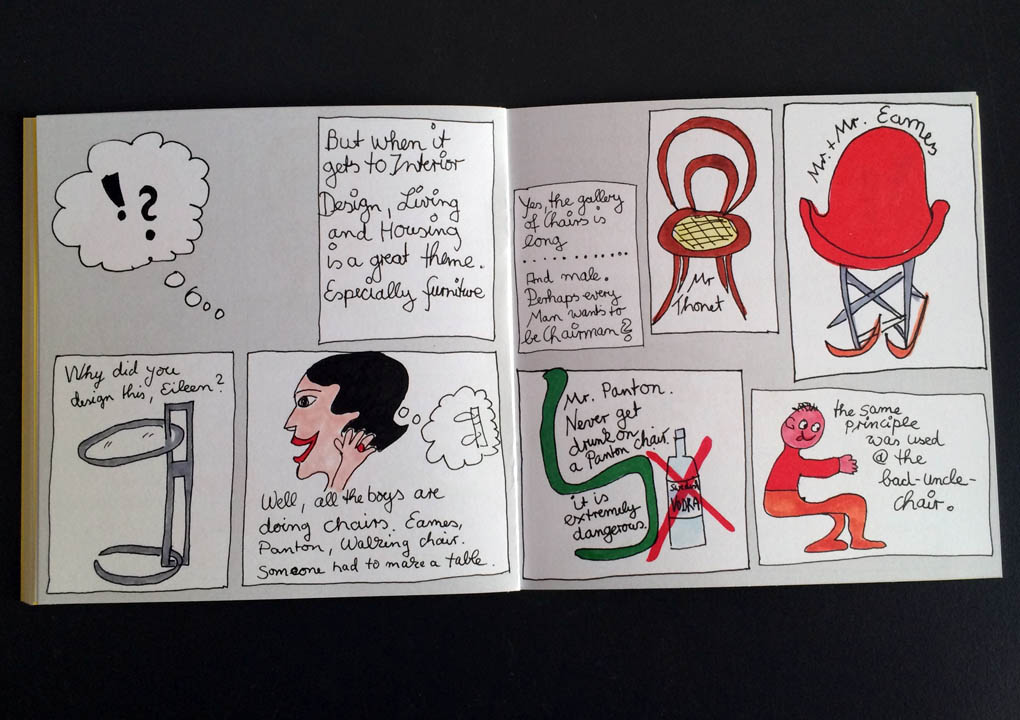 !?
But when it
gets to Interior
Design, Living
and Housing
is a great theme.
Especially furniture
Why did you
design this, Eileen?
Well, all the boys are
doing chairs. Eames,
Panton, Walking chair.
Someone had to make a table.
Yes, the gallery
of Chairs is
long
..............
And male.
Perhaps every
Man wants to
be Chairman?
Mr
Thonet
Mr. + Mr. Eames
Mr. Panton.
Never get
drunk on
a Panton chair.
it is
extremely
dangerous.
Swedish
VODKA
the same
principle
was used
@ the
bad-uncle-
chair.